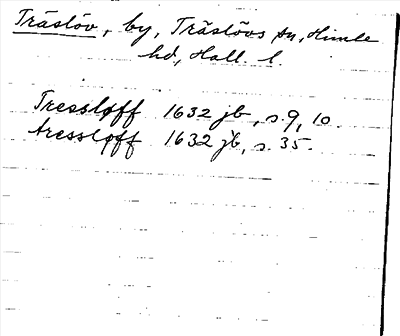 Träslöv, by, Träslövs sn, Himle
hd, Hall. l.
Tressløff 1632 jb, s. 9, 10.
tressløff 1632 jb, s. 35.